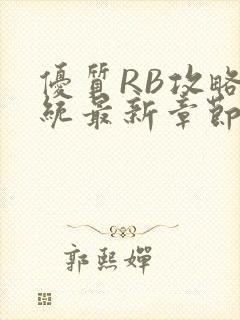 優質RB攻略
統最新章節
郭熙嬋